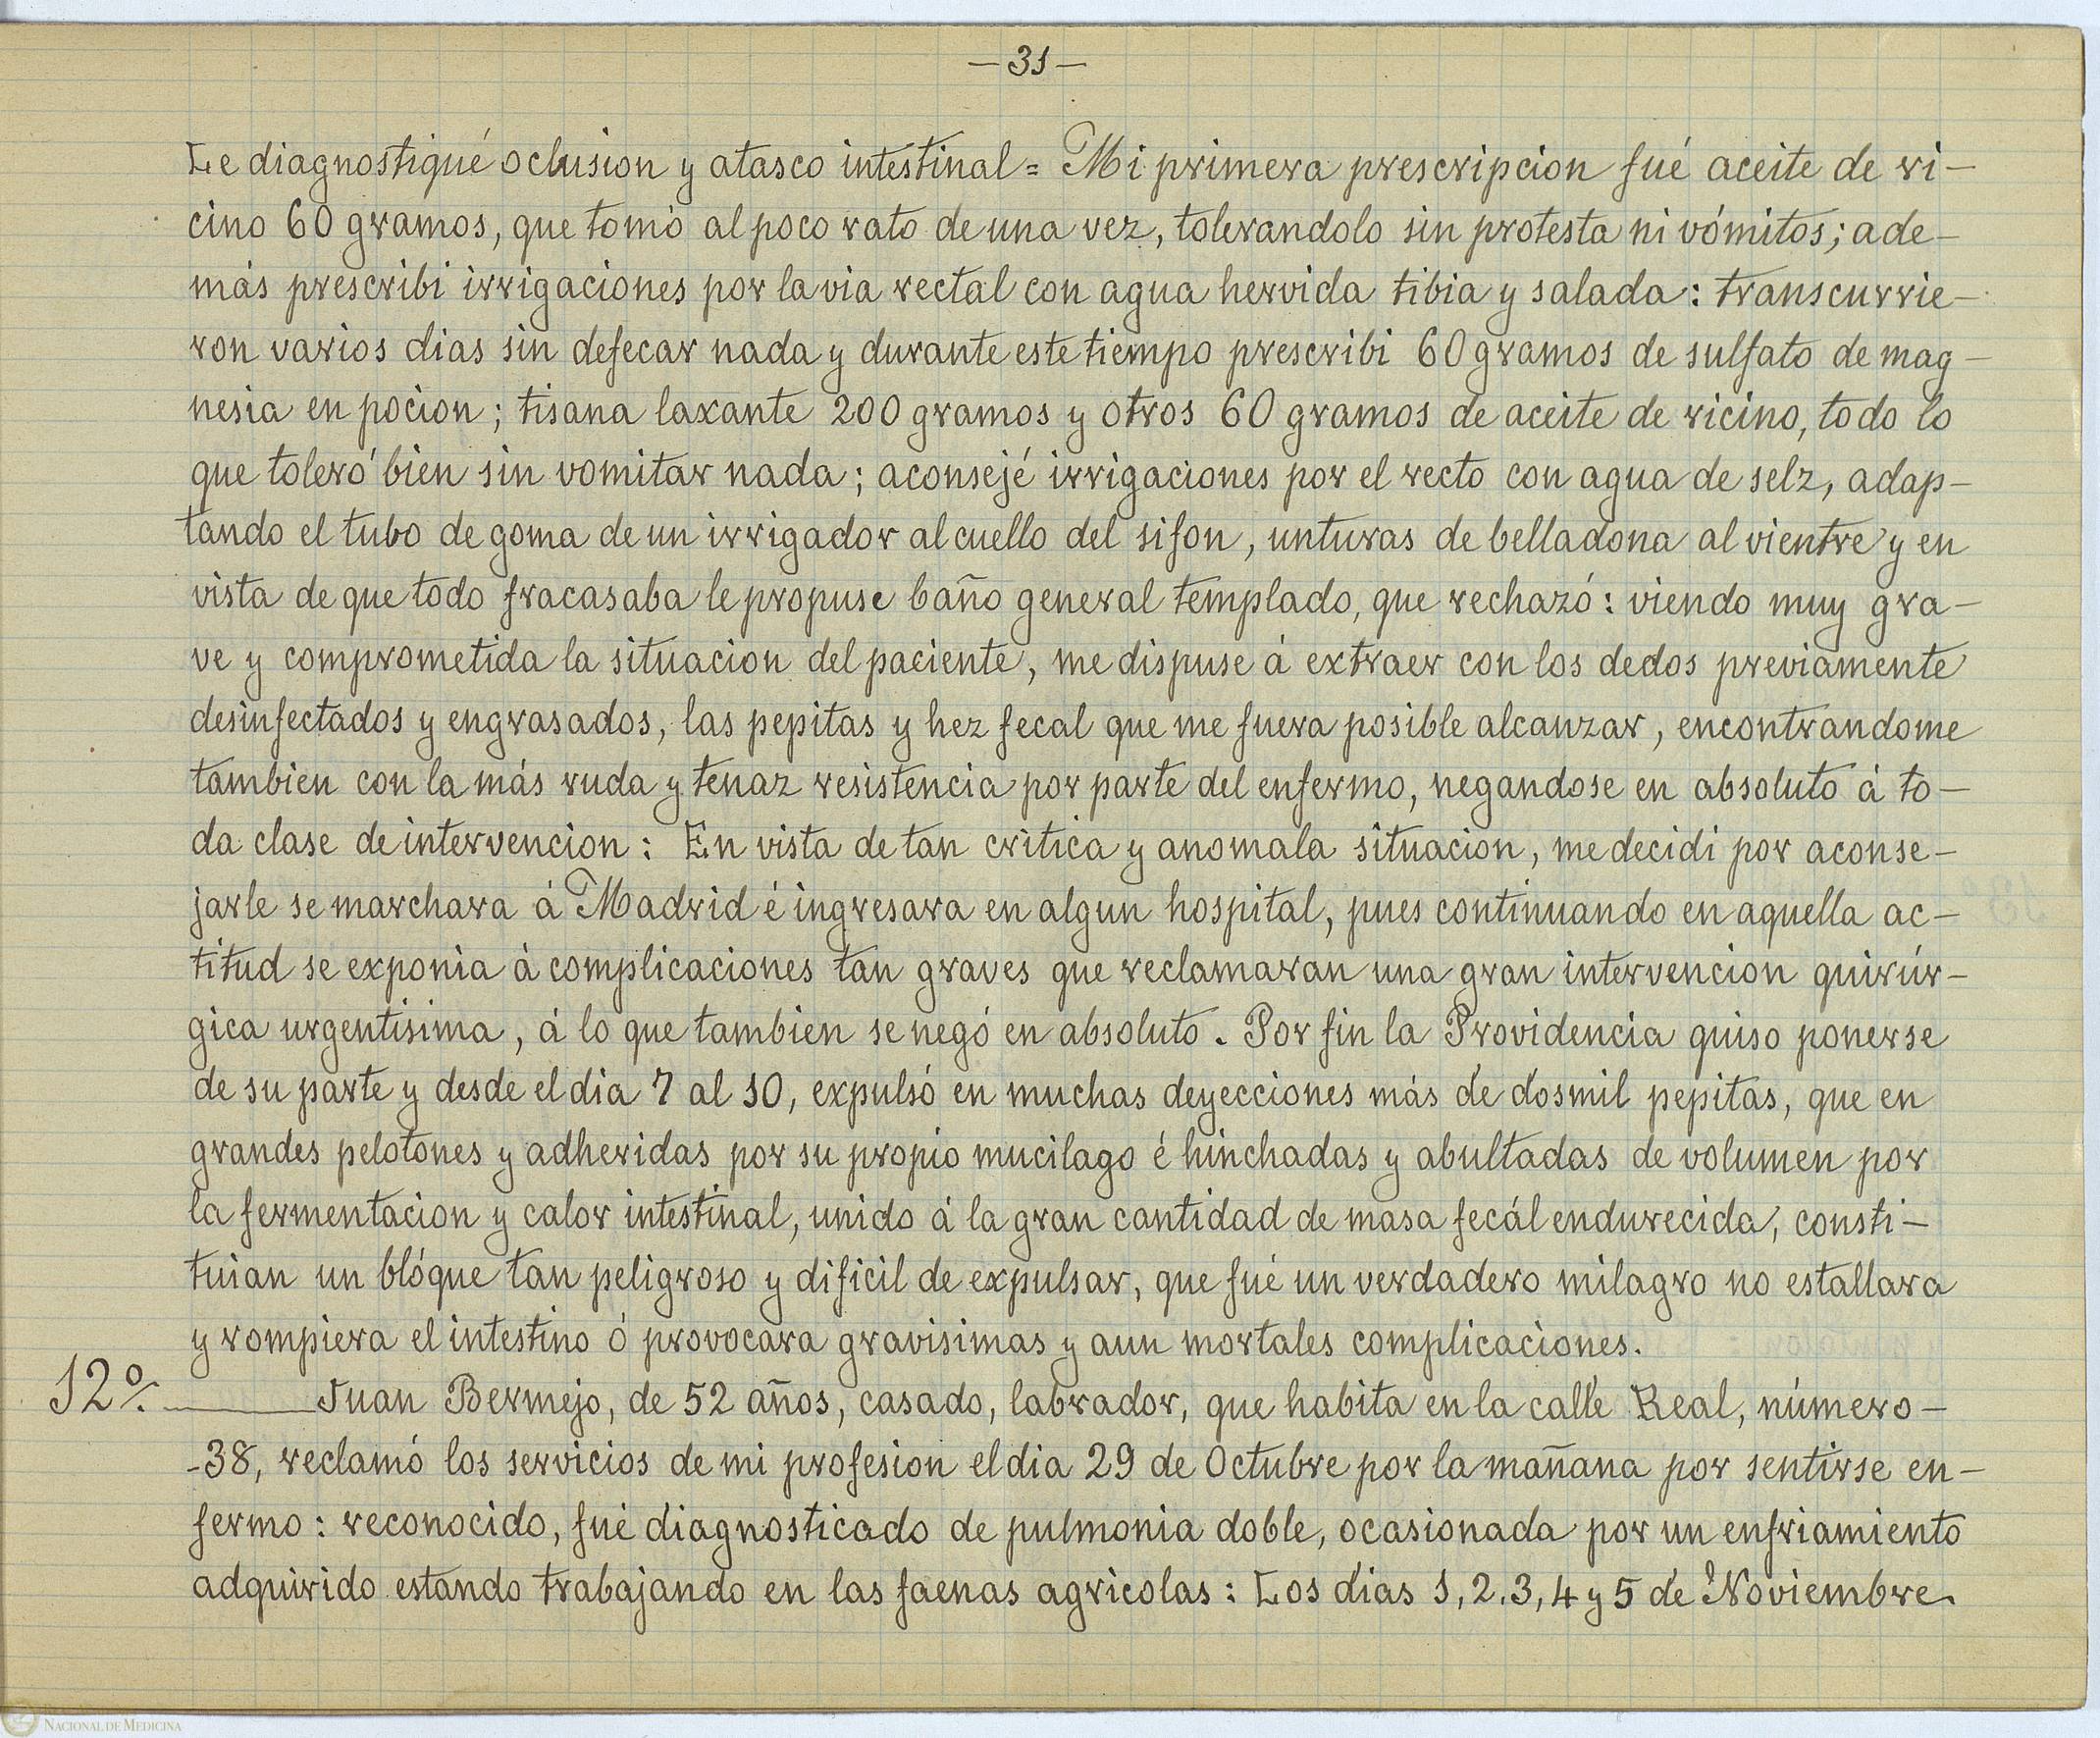 —31—
Le diagnostiqué oclusion y atasco intestinal = Mi primera prescripcion fué aceite de ri-
cino 60 gramos, que tomó al poco rato de una vez, tolerandolo sin protesta ni vómitos; ade-
más prescribi irrigaciones por la via rectal con agua hervida tibia y salada: transcurrie-
ron varios dias sin defecar nada y durante este tiempo prescribi 60 gramos de sulfato de mag-
nesia en pocion; tisana laxante 200 gramos y otros 60 gramos de aceite de ricino, todo lo
que toleró bien sin vomitar nada; aconsejé irrigaciones por el recto con agua de selz, adap-
tando el tubo de goma de un irrigador al cuello del sifon, unturas de belladona al vientre y en
vista de que todo fracasaba le propuse baño general templado, que rechazó: viendo muy gra-
ve y comprometida la situacion del paciente, me dispuse á extraer con los dedos previamente
desinfectados y engrasados, las pepitas y hez fecal que me fuera posible alcanzar, encontrandome
tambien con la más ruda y tenaz resistencia por parte del enfermo, negandose en absoluto á to-
da clase de intervencion: En vista de tan critica y anomala situacion, me decidi por aconse-
jarle se marchara á Madrid é ingresara en algun hospital, pues continuando en aquella ac-
titud se exponia á complicaciones tan graves que reclamaran una gran intervencion quirúr-
gica urgentisima, á lo que tambien se negó en absoluto. Por fin la Providencia quiso ponerse
de su parte y desde el dia 7 al 10, expulsó en muchas deyecciones más de dosmil pepitas, que en
grandes pelotones y adheridas por su propio mucilago é hinchadas y abultadas de volumen por
la fermentacion y calor intestinal, unido á la gran cantidad de masa fecál endurecida, consti-
tuian un blóque tan peligroso y dificil de expulsar, que fué un verdadero milagro no estallara
y rompiera el intestino ó provocara gravisimas y aun mortales complicaciones.
12º. Juan Bermejo, de 52 años, casado, labrador, que habita en la calle Real, número-
-38, reclamó los servicios de mi profesion el dia 29 de Octubre por la mañana por sentirse en-
fermo: reconocido, fué diagnosticado de pulmonia doble, ocasionada por un enfriamiento
adquirido estando trabajando en las faenas agricolas: Los dias 1, 2, 3, 4 y 5 de Noviembre.
NACIONAL DE MEDICINA